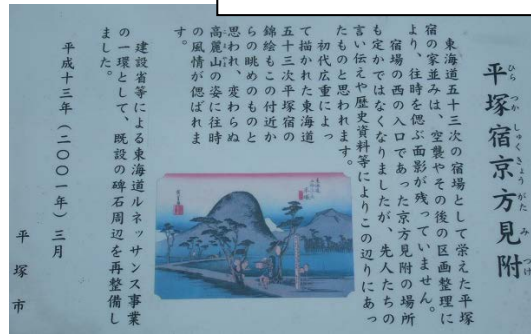 平塚宿京方見附
ひらつかしゅくきょうがたみつけ
東海道五十三次の宿場として栄えた平塚
宿の家並みは、空襲やその後の区画整理に
より、往時を偲ぶ面影が残っていません。
宿場の西の入口であった京方見附の場所
も定かではなくなりましたが、先人たちの
言い伝えや歴史資料等によりこの辺りにあっ
たものと思われます。
初代広重によっ
て描かれた東海道
五十三次平塚宿の
錦絵もこの付近か
らの眺めのものと
思われ、変わらぬ
高麗山の姿に往時
の風情が偲ばれま
す。
建設省等による東海道ルネッサンス事業
の一環として、既設の碑石周辺を再整備し
ました。
平成十三年(二〇〇一年)三月
平塚市